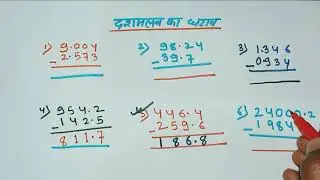 दशमलव का घटाव
1) 9.004
- 2.573
2) 98.24
- 39.7
3) 1.346
- 0.934
4) 954.2
- 142.5
811.7
5) 446.4
- 259.6
186.8
6) 24000.2
- 1984